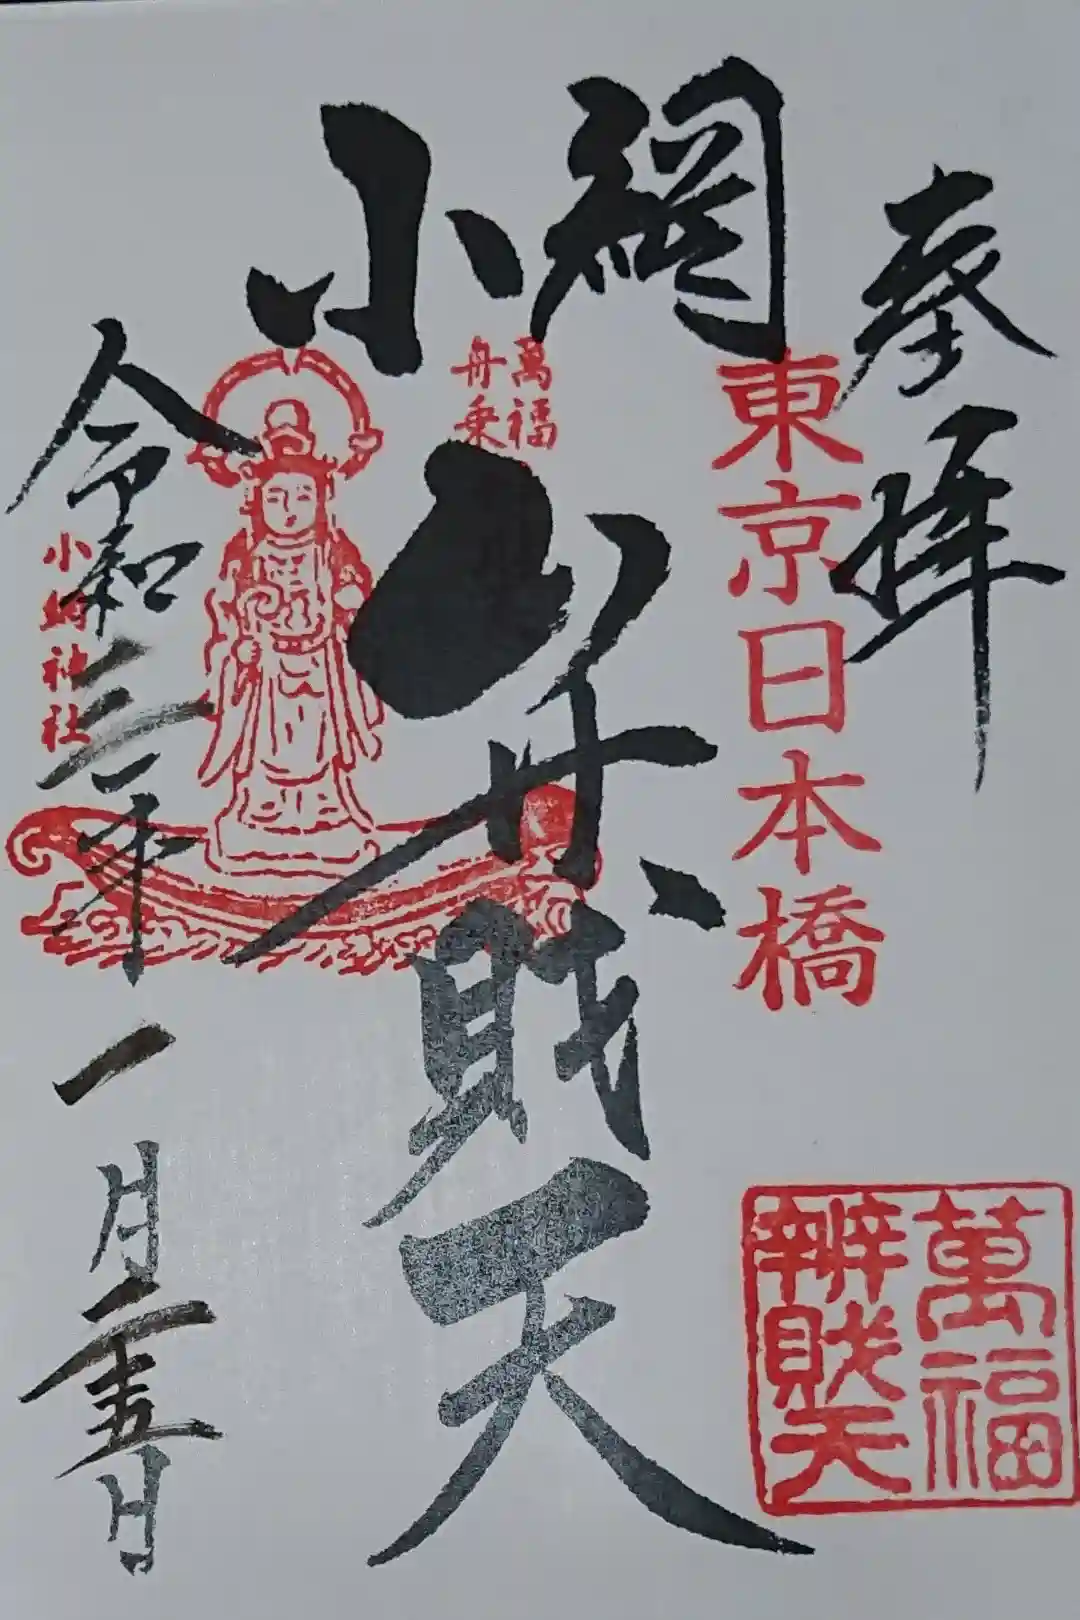 奉拝
東京日本橋
小網
弁財天
萬福
舟乗
小網神社
令和三年
一月二十五日
萬福
辨財天